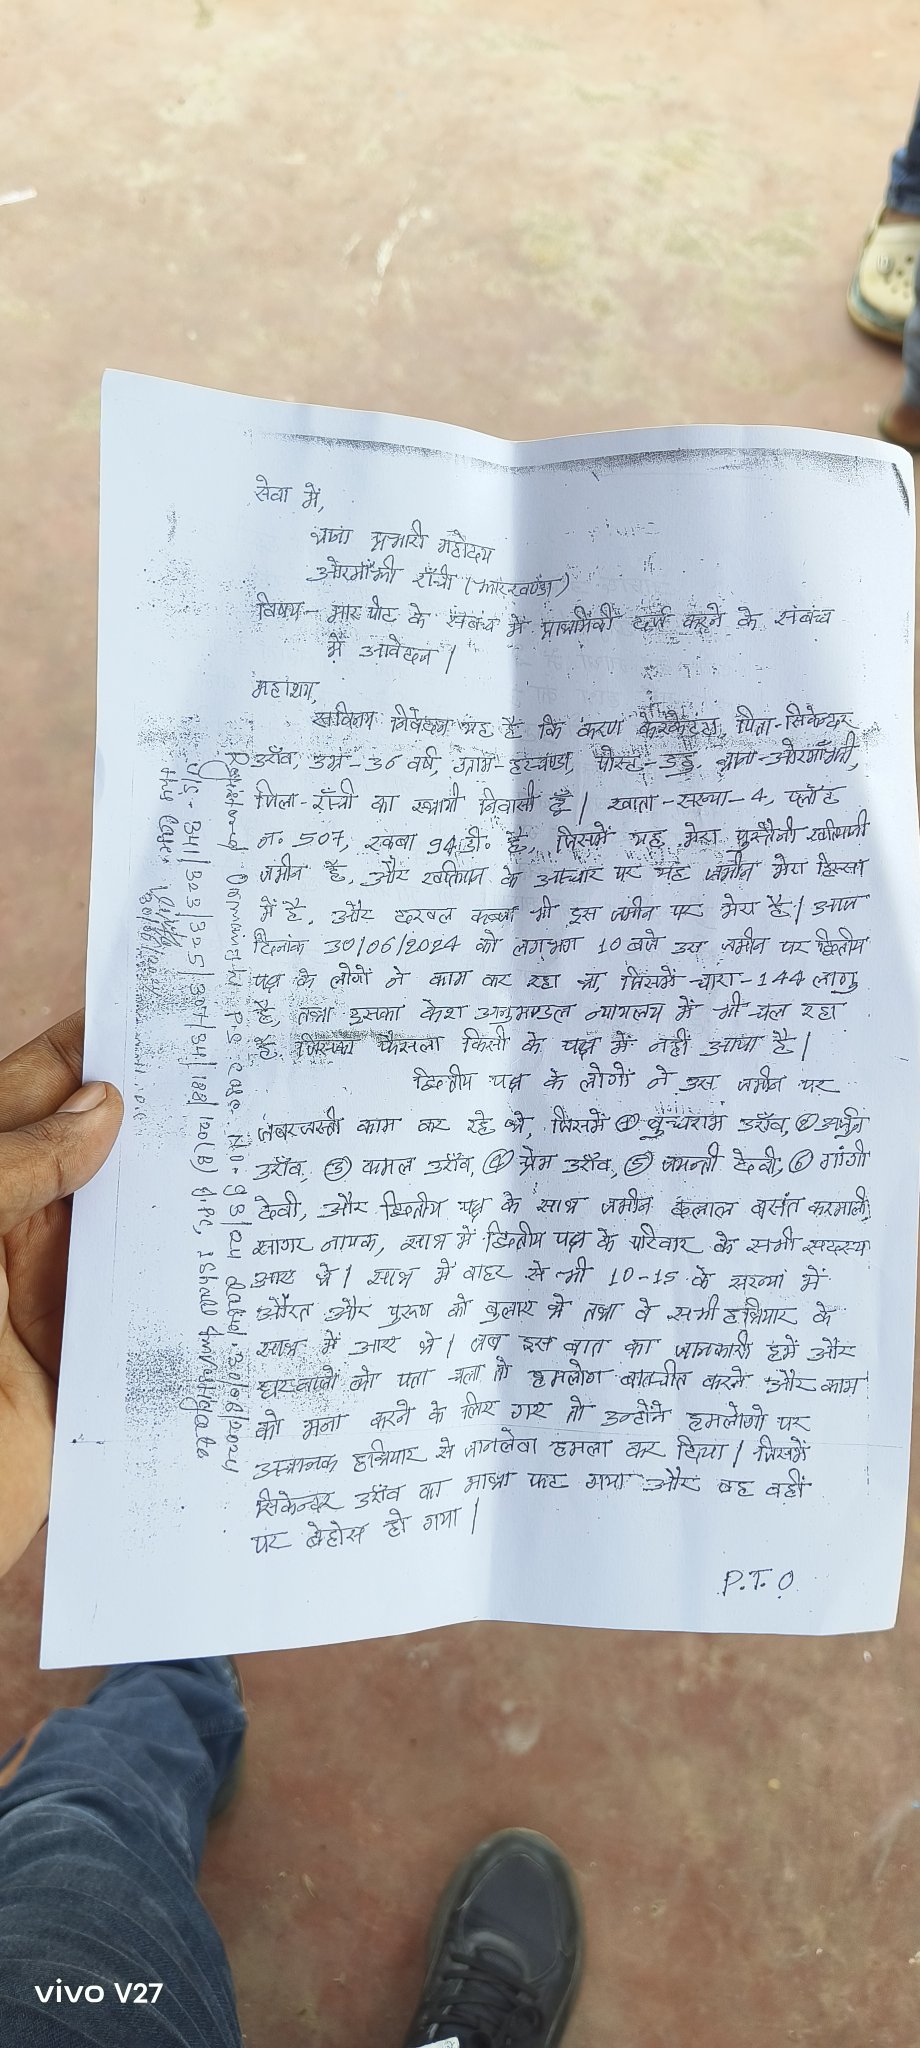 सेवा में,
थाना प्रभारी महोदय
ओरमाँझी राँची (झारखण्ड)
विषय- मारपीट के संबंध में प्राथमिकी दर्ज करने के संबंध
में आवेदन |
महाशय,
सविनय निवेदन यह है कि करण केरकेट्टा, पिता-सिकेन्दर
उराँव, उम्र-36 वर्ष, ग्राम- पोस्ट- थाना-ओरमाँझी,
जिला-राँची का स्थायी निवासी हूँ | खाता-संख्या-4, प्लॉट
नं. 507, रकबा 94 डी. है, जिसमें यह मेरा पुस्तैनी खतियानी
जमीन है, और खतियान के आधार पर यह जमीन मेरा हिस्सा
में है, और दखल कब्जा भी इस जमीन पर मेरा है | आज
दिनांक 30/06/2024 को लगभग 10 बजे उस जमीन पर द्वितीय
पक्ष के लोगों ने काम कर रहा था, जिसमें धारा-144 लागु
है, तथा इसका केश अनुमण्डल न्यायलय में भी चल रहा
है, जिसका फैसला किसी के पक्ष में नहीं आया है |
द्वितीय पक्ष के लोगों ने उस जमीन पर
जबरजस्ती काम कर रहे थे, जिसमें ① बुधराम उराँव, ② अर्जुन
उराँव, ③ कमल उराँव, ④ प्रेम उराँव, ⑤ जयन्ती देवी, ⑥ गांगी
देवी, और द्वितीय पक्ष के साथ जमीन दलाल बसंत करमाली,
सागर नायक, साथ में द्वितीय पक्ष के परिवार के सभी सदस्य
आए थे | साथ में बाहर से भी 10-15 के संख्यां में
औरत और पुरूष को बुलाए थे तथा वे सभी हथियार के
साथ में आए थे | जब इस बात का जानकारी हमें और
घरवालो को पता चला तो हमलोग बातचीत करने और काम
को मना करने के लिए गए तो उन्होंने हमलोगो पर
अचानक हथियार से जानलेवा हमला कर दिया | जिसमें
सिकेन्दर उराँव का माथा फट गया और वह वहीं
पर बेहोस हो गया |
P.T.O
Registered Ormanjhi P.S. case No- 93/24 dated- 30/06/2024
u/s- 341/323/325/307/34/ /120(B) I.P.C, I shall investigate
this case.